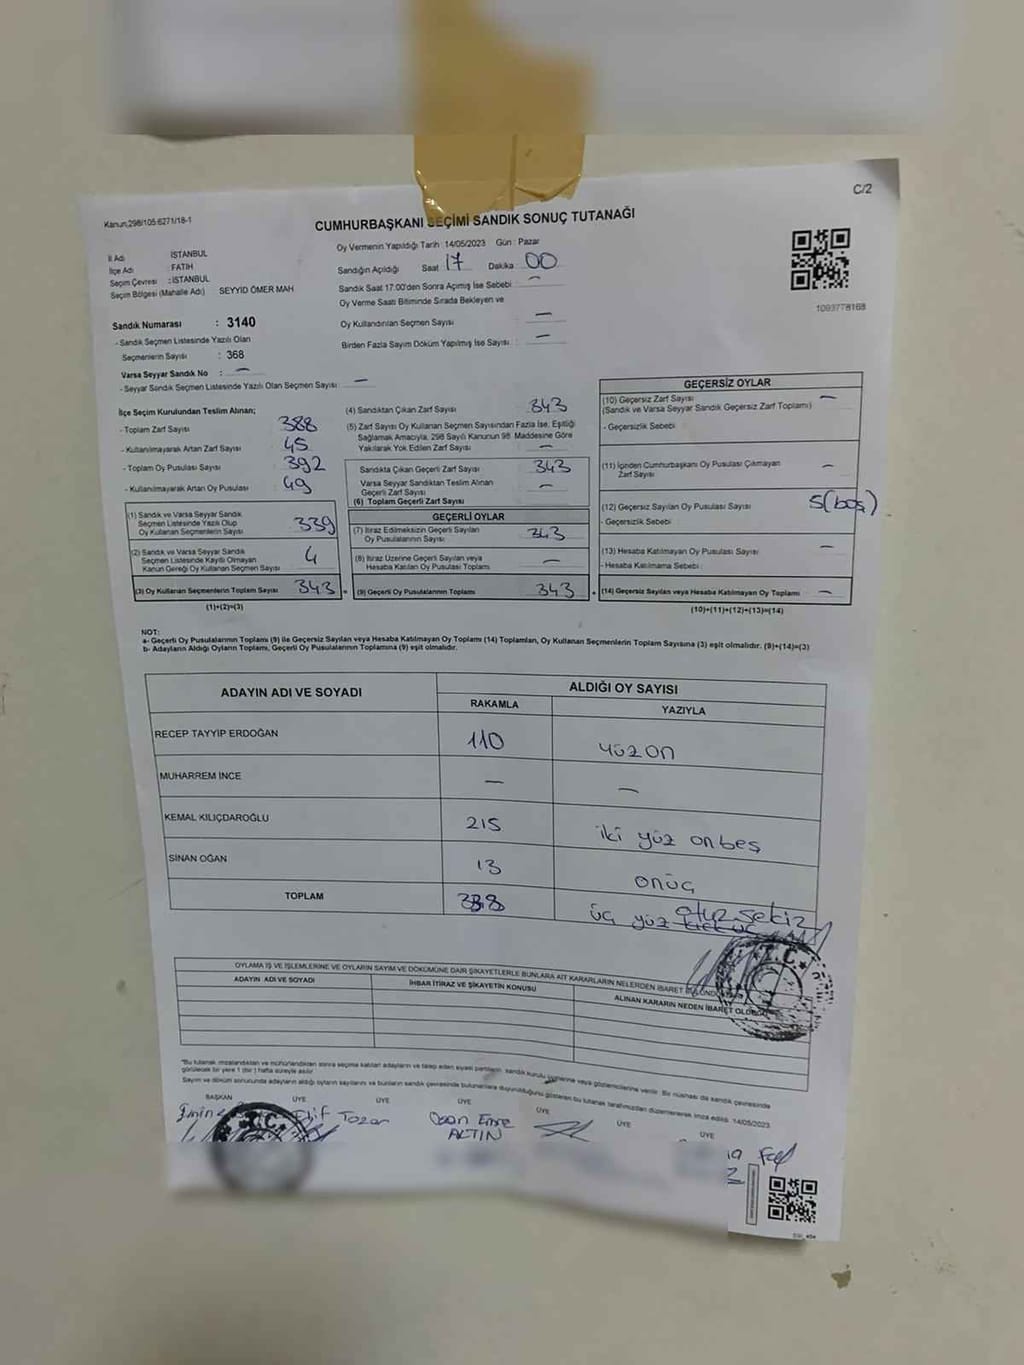 C/2
Kanun;298/105 6271/18-1
CUMHURBAŞKANI SEÇİMİ SANDIK SONUÇ TUTANAĞI
İl Adı İSTANBUL
İlçe Adı : FATİH
Seçim Çevresi : İSTANBUL
Seçim Bölgesi (Mahalle Adı) SEYYİD ÖMER MAH
Sandık Numarası : 3140
- Sandık Seçmen Listesinde Yazılı Olan
Seçmenlerin Sayısı : 368
Varsa Seyyar Sandık No : –
- Seyyar Sandık Seçmen Listesinde Yazılı Olan Seçmen Sayısı –
Oy Vermenin Yapıldığı Tarih : 14/05/2023 Gün : Pazar
Sandığın Açıldığı Saat 17 Dakika 00
Sandık Saat 17.00'den Sonra Açımış İse Sebebi –
Oy Verme Saati Bitiminde Sırada Bekleyen ve
Oy Kullandırılan Seçmen Sayısı –
Birden Fazla Sayım Döküm Yapılmış İse Sayısı : –
1093778168
İlçe Seçim Kurulundan Teslim Alınan;
- Toplam Zarf Sayısı 388
- Kullanılmayarak Artan Zarf Sayısı 45
- Toplam Oy Pusulası Sayısı 392
- Kullanılmayarak Artan Oy Pusulası 49
(1) Sandık ve Varsa Seyyar Sandık
Seçmen Listesinde Yazılı Olup
Oy Kullanan Seçmenlerin Sayısı 339
(2) Sandık ve Varsa Seyyar Sandık
Seçmen Listesinde Kayıtlı Olmayan
Kanun Gereği Oy Kullanan Seçmen Sayısı 4
(3) Oy Kullanan Seçmenlerin Toplam Sayısı 343
(1)+(2)=(3)
(4) Sandıktan Çıkan Zarf Sayısı 343
(5) Zarf Sayısı Oy Kullanan Seçmen Sayısından Fazla İse, Eşitliği
Sağlamak Amacıyla, 298 Sayılı Kanunun 98. Maddesine Göre
Yakılarak Yok Edilen Zarf Sayısı –
Sandıkta Çıkan Geçerli Zarf Sayısı 343
Varsa Seyyar Sandıktan Teslim Alınan
Geçerli Zarf Sayısı –
(6) Toplam Geçerli Zarf Sayısı
GEÇERLİ OYLAR
(7) İtiraz Edilmeksizin Geçerli Sayılan
Oy Pusulalarının Sayısı 343
(8) İtiraz Üzerine Geçerli Sayılan veya
Hesaba Katılan Oy Pusulası Toplamı –
= (9) Geçerli Oy Pusulalarının Toplamı 343
GEÇERSİZ OYLAR
(10) Geçersiz Zarf Sayısı –
(Sandık ve Varsa Seyyar Sandık Geçersiz Zarf Toplamı)
- Geçersizlik Sebebi
(11) İçinden Cumhurbaşkanı Oy Pusulası Çıkmayan
Zarf Sayısı –
(12) Geçersiz Sayılan Oy Pusulası Sayısı 5(boş)
- Geçersizlik Sebebi :
(13) Hesaba Katılmayan Oy Pusulası Sayısı –
- Hesaba Katılmama Sebebi :
+ (14) Geçersiz Sayılan veya Hesaba Katılmayan Oy Toplamı –
(10)+(11)+(12)+(13)=(14)
NOT:
a- Geçerli Oy Pusulalarının Toplamı (9) ile Geçersiz Sayılan veya Hesaba Katılmayan Oy Toplamı (14) Toplamları, Oy Kullanan Seçmenlerin Toplam Sayısına (3) eşit olmalıdır. (9)+(14)=(3)
b- Adayların Aldığı Oyların Toplamı, Geçerli Oy Pusulalarının Toplamına (9) eşit olmalıdır.
ADAYIN ADI VE SOYADI ALDIĞI OY SAYISI
RAKAMLA YAZIYLA
RECEP TAYYİP ERDOĞAN 110 yüzon
MUHARREM İNCE – –
KEMAL KILIÇDAROĞLU 215 iki yüz onbeş
SİNAN OĞAN 13 onüç
TOPLAM 338 üç yüz otuz sekiz
OYLAMA İŞ VE İŞLEMLERİNE VE OYLARIN SAYIM VE DÖKÜMÜNE DAİR ŞİKAYETLERLE BUNLARA AİT KARARLARIN NELERDEN İBARET
ADAYIN ADI VE SOYADI İHBAR İTİRAZ VE ŞİKAYETİN KONUSU ALINAN KARARIN NEDEN İBARET
T.C.
*Bu tutanak imzalandıktan ve mühürlendikten sonra seçime katılan adayların ve talep eden siyasi partilerin, sandık kurulu üyelerine veya gözlemcilerine verilir. Bir nüshası da sandık çevresinde
görülecek bir yere 1 (bir) hafta süreyle asılır.
Sayım ve döküm sonucunda adayların aldığı oyların sayılarını ve bunların sandık çevresinde bulunanlara duyurulduğunu gösteren bu tutanak tarafımızdan düzenlenerek imza edildi. 14/05/2023
BAŞKAN ÜYE ÜYE ÜYE ÜYE ÜYE ÜYE
Elif Tozar
Ozan Emre
ALTIN
T.C.